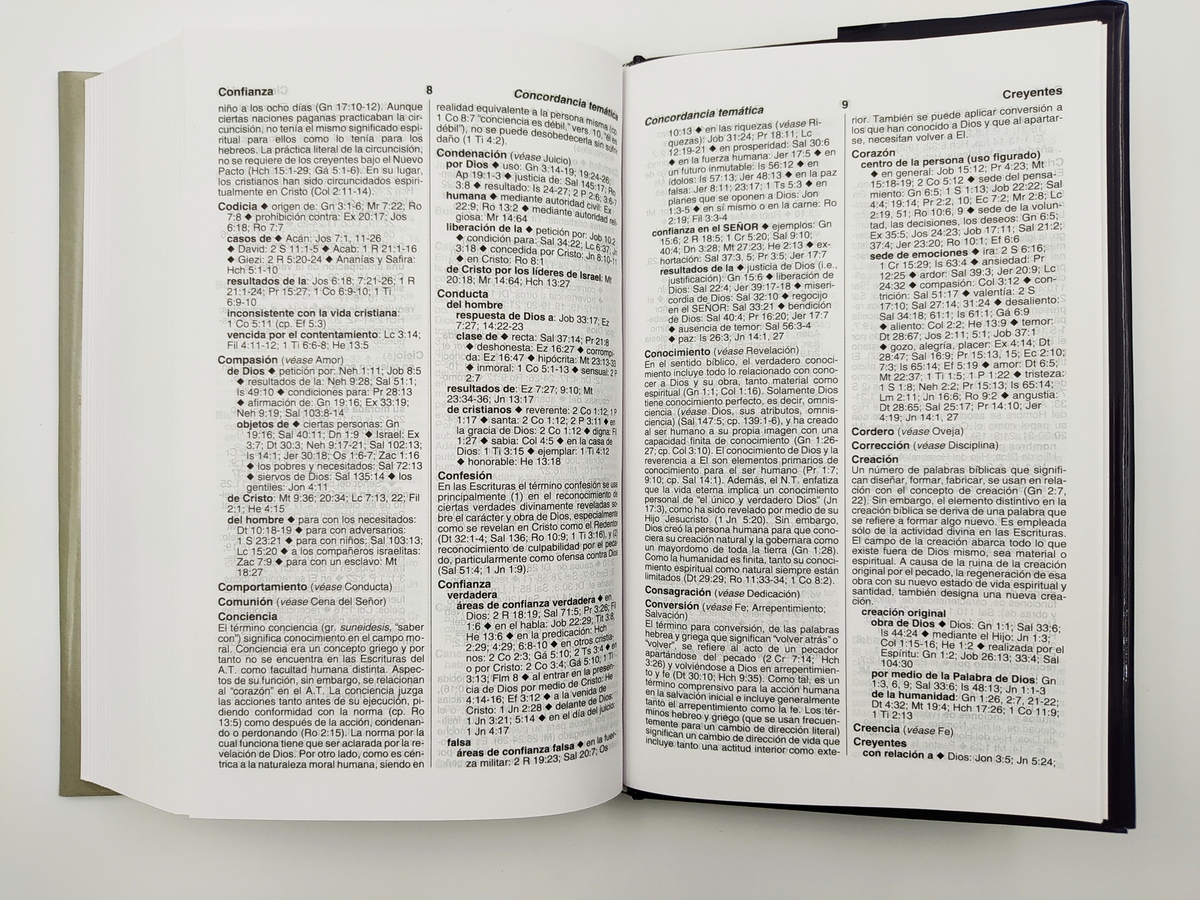 Confianza
8
Concordancia temática
niño a los ocho días (Gn 17:10-12). Aunque
ciertas naciones paganas practicaban la cir-
cuncisión, no tenía el mismo significado espi-
ritual para ellos como lo tenía para los
hebreos. La práctica literal de la circuncisión,
no se requiere de los creyentes bajo el Nuevo
Pacto (Hch 15:1-29; Gá 5:1-6). En su lugar,
los cristianos han sido circuncidados espiri-
tualmente en Cristo (Col 2:11-14).
Codicia ◆ origen de: Gn 3:1-6; Mr 7:22; Ro
7:8 ◆ prohibición contra: Ex 20:17; Jos
6:18; Ro 7:7
casos de ◆ Acán: Jos 7:1, 11-26
◆ David: 2 S 11:1-5 ◆ Acab: 1 R 21:1-16
◆ Giezi: 2 R 5:20-24 ◆ Ananías y Safira:
Hch 5:1-10
resultados de la: Jos 6:18; 7:21-26; 1 R
21:1-24; Pr 15:27; 1 Co 6:9-10; 1 Ti
6:9-10
inconsistente con la vida cristiana:
1 Co 5:11 (cp. Ef 5:3)
vencida por el contentamiento: Lc 3:14;
Fil 4:11-12; 1 Ti 6:6-8; He 13:5
Compasión (véase Amor)
de Dios ◆ petición por: Neh 1:11; Job 8:5
◆ resultados de la: Neh 9:28; Sal 51:1;
Is 49:10 ◆ condiciones para: Pr 28:13
◆ afirmación de: Gn 19:16; Ex 33:19;
Neh 9:19; Sal 103:8-14
objetos de ◆ ciertas personas: Gn
19:16; Sal 40:11; Dn 1:9 ◆ Israel: Ex
3:7; Dt 30:3; Neh 9:17-21; Sal 102:13;
Is 14:1; Jer 30:18; Os 1:6-7; Zac 1:16
◆ los pobres y necesitados: Sal 72:13
◆ siervos de Dios: Sal 135:14 ◆ los
gentiles: Jon 4:11
de Cristo: Mt 9:36; 20:34; Lc 7:13, 22; Fil
2:1; He 4:15
del hombre ◆ para con los necesitados:
Dt 10:18-19 ◆ para con adversarios:
1 S 23:21 ◆ para con niños: Sal 103:13;
Lc 15:20 ◆ a los compañeros israelitas:
Zac 7:9 ◆ para con un esclavo: Mt
18:27
Comportamiento (véase Conducta)
Comunión (véase Cena del Señor)
Conciencia
El término conciencia (gr. suneidesis, "saber
con") significa conocimiento en el campo mo-
ral. Conciencia era un concepto griego y por
tanto no se encuentra en las Escrituras del
A.T. como facultad humana distinta. Aspec-
tos de su función, sin embargo, se relacionan
al "corazón" en el A.T. La conciencia juzga
las acciones tanto antes de su ejecución, pi-
diendo conformidad con la norma (cp. Ro
13:5) como después de la acción, condenan-
do o perdonando (Ro 2:15). La norma por la
cual funciona tiene que ser aclarada por la re-
velación de Dios. Por otro lado, como es cén-
trica a la naturaleza moral humana, siendo en
realidad equivalente a la persona misma (cp.
1 Co 8:7 "conciencia es débil," vers. 10, "él es
débil"), no se puede desobedecerla sin sufrir
daño (1 Ti 4:2).
Condenación (véase Juicio)
por Dios ◆ uso: Gn 3:14-19; 19:24-26;
Ap 19:1-3 ◆ justicia de: Sal 145:17; Ro
3:8 ◆ resultado: Is 24-27; 2 P 2:6; 3:6-7
humana ◆ mediante autoridad civil: Ex
22:9; Ro 13:2 ◆ mediante autoridad reli-
giosa: Mr 14:64
liberación de la ◆ petición por: Job 10:2
◆ condición para: Sal 34:22; Lc 6:37; Jn
3:18 ◆ concedida por Cristo: Jn 8:10-11
◆ en Cristo: Ro 8:1
de Cristo por los líderes de Israel: Mt
20:18; Mr 14:64; Hch 13:27
Conducta
del hombre
respuesta de Dios a: Job 33:17; Ez
7:27; 14:22-23
clase de ◆ recta: Sal 37:14; Pr 21:8
◆ deshonesta: Ez 16:27 ◆ corrompi-
da: Ez 16:47 ◆ hipócrita: Mt 23:13-33
◆ inmoral: 1 Co 5:1-13 ◆ sensual: 2 P
2:7
resultados de: Ez 7:27; 9:10; Mt
23:34-36; Jn 13:17
de cristianos ◆ reverente: 2 Co 1:12; 1 P
1:17 ◆ santa: 2 Co 1:12; 2 P 3:11 ◆ en
la gracia de Dios: 2 Co 1:12 ◆ digna: Fil
1:27 ◆ sabia: Col 4:5 ◆ en la casa de
Dios: 1 Ti 3:15 ◆ ejemplar: 1 Ti 4:12
◆ honorable: He 13:18
Confesión
En las Escrituras el término confesión se usa
principalmente (1) en el reconocimiento de
ciertas verdades divinamente reveladas so-
bre el carácter y obra de Dios, especialmente
como se revelan en Cristo como el Redentor
(Dt 32:1-4; Sal 136; Ro 10:9; 1 Ti 3:16), y (2)
reconocimiento de culpabilidad por el peca-
do, particularmente como ofensa contra Dios
(Sal 51:4; 1 Jn 1:9).
Confianza
verdadera
áreas de confianza verdadera ◆ en
Dios: 2 R 18:19; Sal 71:5; Pr 3:26; Fil
1:6 ◆ en el habla: Job 22:29; Tit 3:8;
He 13:6 ◆ en la predicación: Hch
2:29; 4:29; 6:8-10 ◆ en otros cristia-
nos: 2 Co 2:3; Gá 5:10; 2 Ts 3:4 ◆ en
o por Cristo: 2 Co 3:4; Gá 5:10; 1 Ti
3:13; Flm 8 ◆ al entrar en la presen-
cia de Dios por medio de Cristo: He
4:14-16; Ef 3:12 ◆ a la venida de
Cristo: 1 Jn 2:28 ◆ delante de Dios:
1 Jn 3:21; 5:14 ◆ en el día del juicio:
1 Jn 4:17
falsa
áreas de confianza falsa ◆ en la fuer-
za militar: 2 R 19:23; Sal 20:7; Os
Concordancia temática
9
Creyentes
10:13 ◆ en las riquezas (véase Ri-
quezas): Job 31:24; Pr 18:11; Lc
12:19-21 ◆ en prosperidad: Sal 30:6
◆ en la fuerza humana: Jer 17:5 ◆ en
un futuro inmutable: Is 56:12 ◆ en
ídolos: Is 57:13; Jer 48:13 ◆ en la paz
falsa: Jer 8:11; 23:17; 1 Ts 5:3 ◆ en
planes que se oponen a Dios: Jon
1:3-5 ◆ en sí mismo o en la carne: Ro
2:19; Fil 3:3-4
confianza en el SEÑOR ◆ ejemplos: Gn
15:6; 2 R 18:5; 1 Cr 5:20; Sal 9:10;
40:4; Dn 3:28; Mt 27:23; He 2:13 ◆ ex-
hortación: Sal 37:3, 5; Pr 3:5; Jer 17:7
resultados de la ◆ justicia de Dios (i.e.,
justificación): Gn 15:6 ◆ liberación de
Dios: Sal 22:4; Jer 39:17-18 ◆ miseri-
cordia de Dios: Sal 32:10 ◆ regocijo
en el SEÑOR: Sal 33:21 ◆ bendición
de Dios: Sal 40:4; Pr 16:20; Jer 17:7
◆ ausencia de temor: Sal 56:3-4
◆ paz: Is 26:3; Jn 14:1, 27
Conocimiento (véase Revelación)
En el sentido bíblico, el verdadero conoci-
miento incluye todo lo relacionado con cono-
cer a Dios y su obra, tanto material como
espiritual (Gn 1:1; Col 1:16). Solamente Dios
tiene conocimiento perfecto, es decir, omnis-
ciencia (véase Dios, sus atributos, omnis-
ciencia) (Sal 147:5; cp. 139:1-6), y ha creado
al ser humano a su propia imagen con una
capacidad finita de conocimiento (Gn 1:26-
27; cp. Col 3:10). El conocimiento de Dios y la
reverencia a El son elementos primarios de
conocimiento para el ser humano (Pr 1:7;
9:10; cp. Sal 14:1). Además, el N.T. enfatiza
que la vida eterna implica un conocimiento
personal de "el único y verdadero Dios" (Jn
17:3), como ha sido revelado por medio de su
Hijo Jesucristo (1 Jn 5:20). Sin embargo,
Dios creó la persona humana para que cono-
ciera su creación natural y la gobernara como
un mayordomo de toda la tierra (Gn 1:28).
Como la humanidad es finita, tanto su conoci-
miento espiritual como natural siempre están
limitados (Dt 29:29; Ro 11:33-34; 1 Co 8:2).
Consagración (véase Dedicación)
Conversión (véase Fe; Arrepentimiento;
Salvación)
El término para conversión, de las palabras
hebrea y griega que significan "volver atrás" o
"volver", se refiere al acto de un pecador
apartándose del pecado (2 Cr 7:14; Hch
3:26) y volviéndose a Dios en arrepentimien-
to y fe (Dt 30:10; Hch 9:35). Como tal, es un
término comprensivo para la acción humana
en la salvación inicial e incluye generalmente
tanto el arrepentimiento como la fe. Los tér-
minos hebreo y griego (que se usan frecuen-
temente para un cambio de dirección literal)
significan un cambio de dirección de vida que
incluye tanto una actitud interior como exte-
rior. También se puede aplicar conversión a
los que han conocido a Dios y que al apartar-
se, necesitan volver a El.
Corazón
centro de la persona (uso figurado)
◆ en general: Job 15:12; Pr 4:23; Mt
15:18-19; 2 Co 5:12 ◆ sede del pensa-
miento: Gn 6:5; 1 S 1:13; Job 22:22; Sal
4:4; 19:14; Pr 2:2, 10; Ec 7:2; Mr 2:8; Lc
2:19, 51; Ro 10:6, 9 ◆ sede de la volun-
tad, las decisiones, los deseos: Gn 6:5;
Ex 35:5; Jos 24:23; Job 17:11; Sal 21:2;
37:4; Jer 23:20; Ro 10:1; Ef 6:6
sede de emociones ◆ ira: 2 S 6:16;
1 Cr 15:29; Is 63:4 ◆ ansiedad: Pr
12:25 ◆ ardor: Sal 39:3; Jer 20:9; Lc
24:32 ◆ compasión: Col 3:12 ◆ con-
trición: Sal 51:17 ◆ valentía: 2 S
17:10; Sal 27:14; 31:24 ◆ desaliento:
Sal 34:18; 61:1; Is 61:1; Gá 6:9
◆ aliento: Col 2:2; He 13:9 ◆ temor:
Dt 28:67; Jos 2:11; 5:1; Job 37:1
◆ gozo, alegría, placer: Ex 4:14; Dt
28:47; Sal 16:9; Pr 15:13, 15; Ec 2:10;
7:3; Is 65:14; Ef 5:19 ◆ amor: Dt 6:5;
Mt 22:37; 1 Ti 1:5; 1 P 1:22 ◆ tristeza:
1 S 1:8; Neh 2:2; Pr 15:13; Is 65:14;
Lm 2:11; Jn 16:6; Ro 9:2 ◆ angustia:
Dt 28:65; Sal 25:17; Pr 14:10; Jer
4:19; Jn 14:1, 27
Cordero (véase Oveja)
Corrección (véase Disciplina)
Creación
Un número de palabras bíblicas que signifi-
can diseñar, formar, fabricar, se usan en rela-
ción con el concepto de creación (Gn 2:7,
22). Sin embargo, el elemento distintivo en la
creación bíblica se deriva de una palabra que
se refiere a formar algo nuevo. Es empleada
sólo de la actividad divina en las Escrituras.
El campo de la creación abarca todo lo que
existe fuera de Dios mismo, sea material o
espiritual. A causa de la ruina de la creación
original por el pecado, la regeneración de esa
obra con su nuevo estado de vida espiritual y
santidad, también designa una nueva crea-
ción.
creación original
obra de Dios ◆ Dios: Gn 1:1; Sal 33:6;
Is 44:24 ◆ mediante el Hijo: Jn 1:3;
Col 1:15-16; He 1:2 ◆ realizada por el
Espíritu: Gn 1:2; Job 26:13; 33:4; Sal
104:30
por medio de la Palabra de Dios: Gn
1:3, 6, 9; Sal 33:6; Is 48:13; Jn 1:1-3
de la humanidad: Gn 1:26, 2:7, 21-22;
Dt 4:32; Mt 19:4; Hch 17:26; 1 Co 11:9;
1 Ti 2:13
Creencia (véase Fe)
Creyentes
con relación a ◆ Dios: Jon 3:5; Jn 5:24;